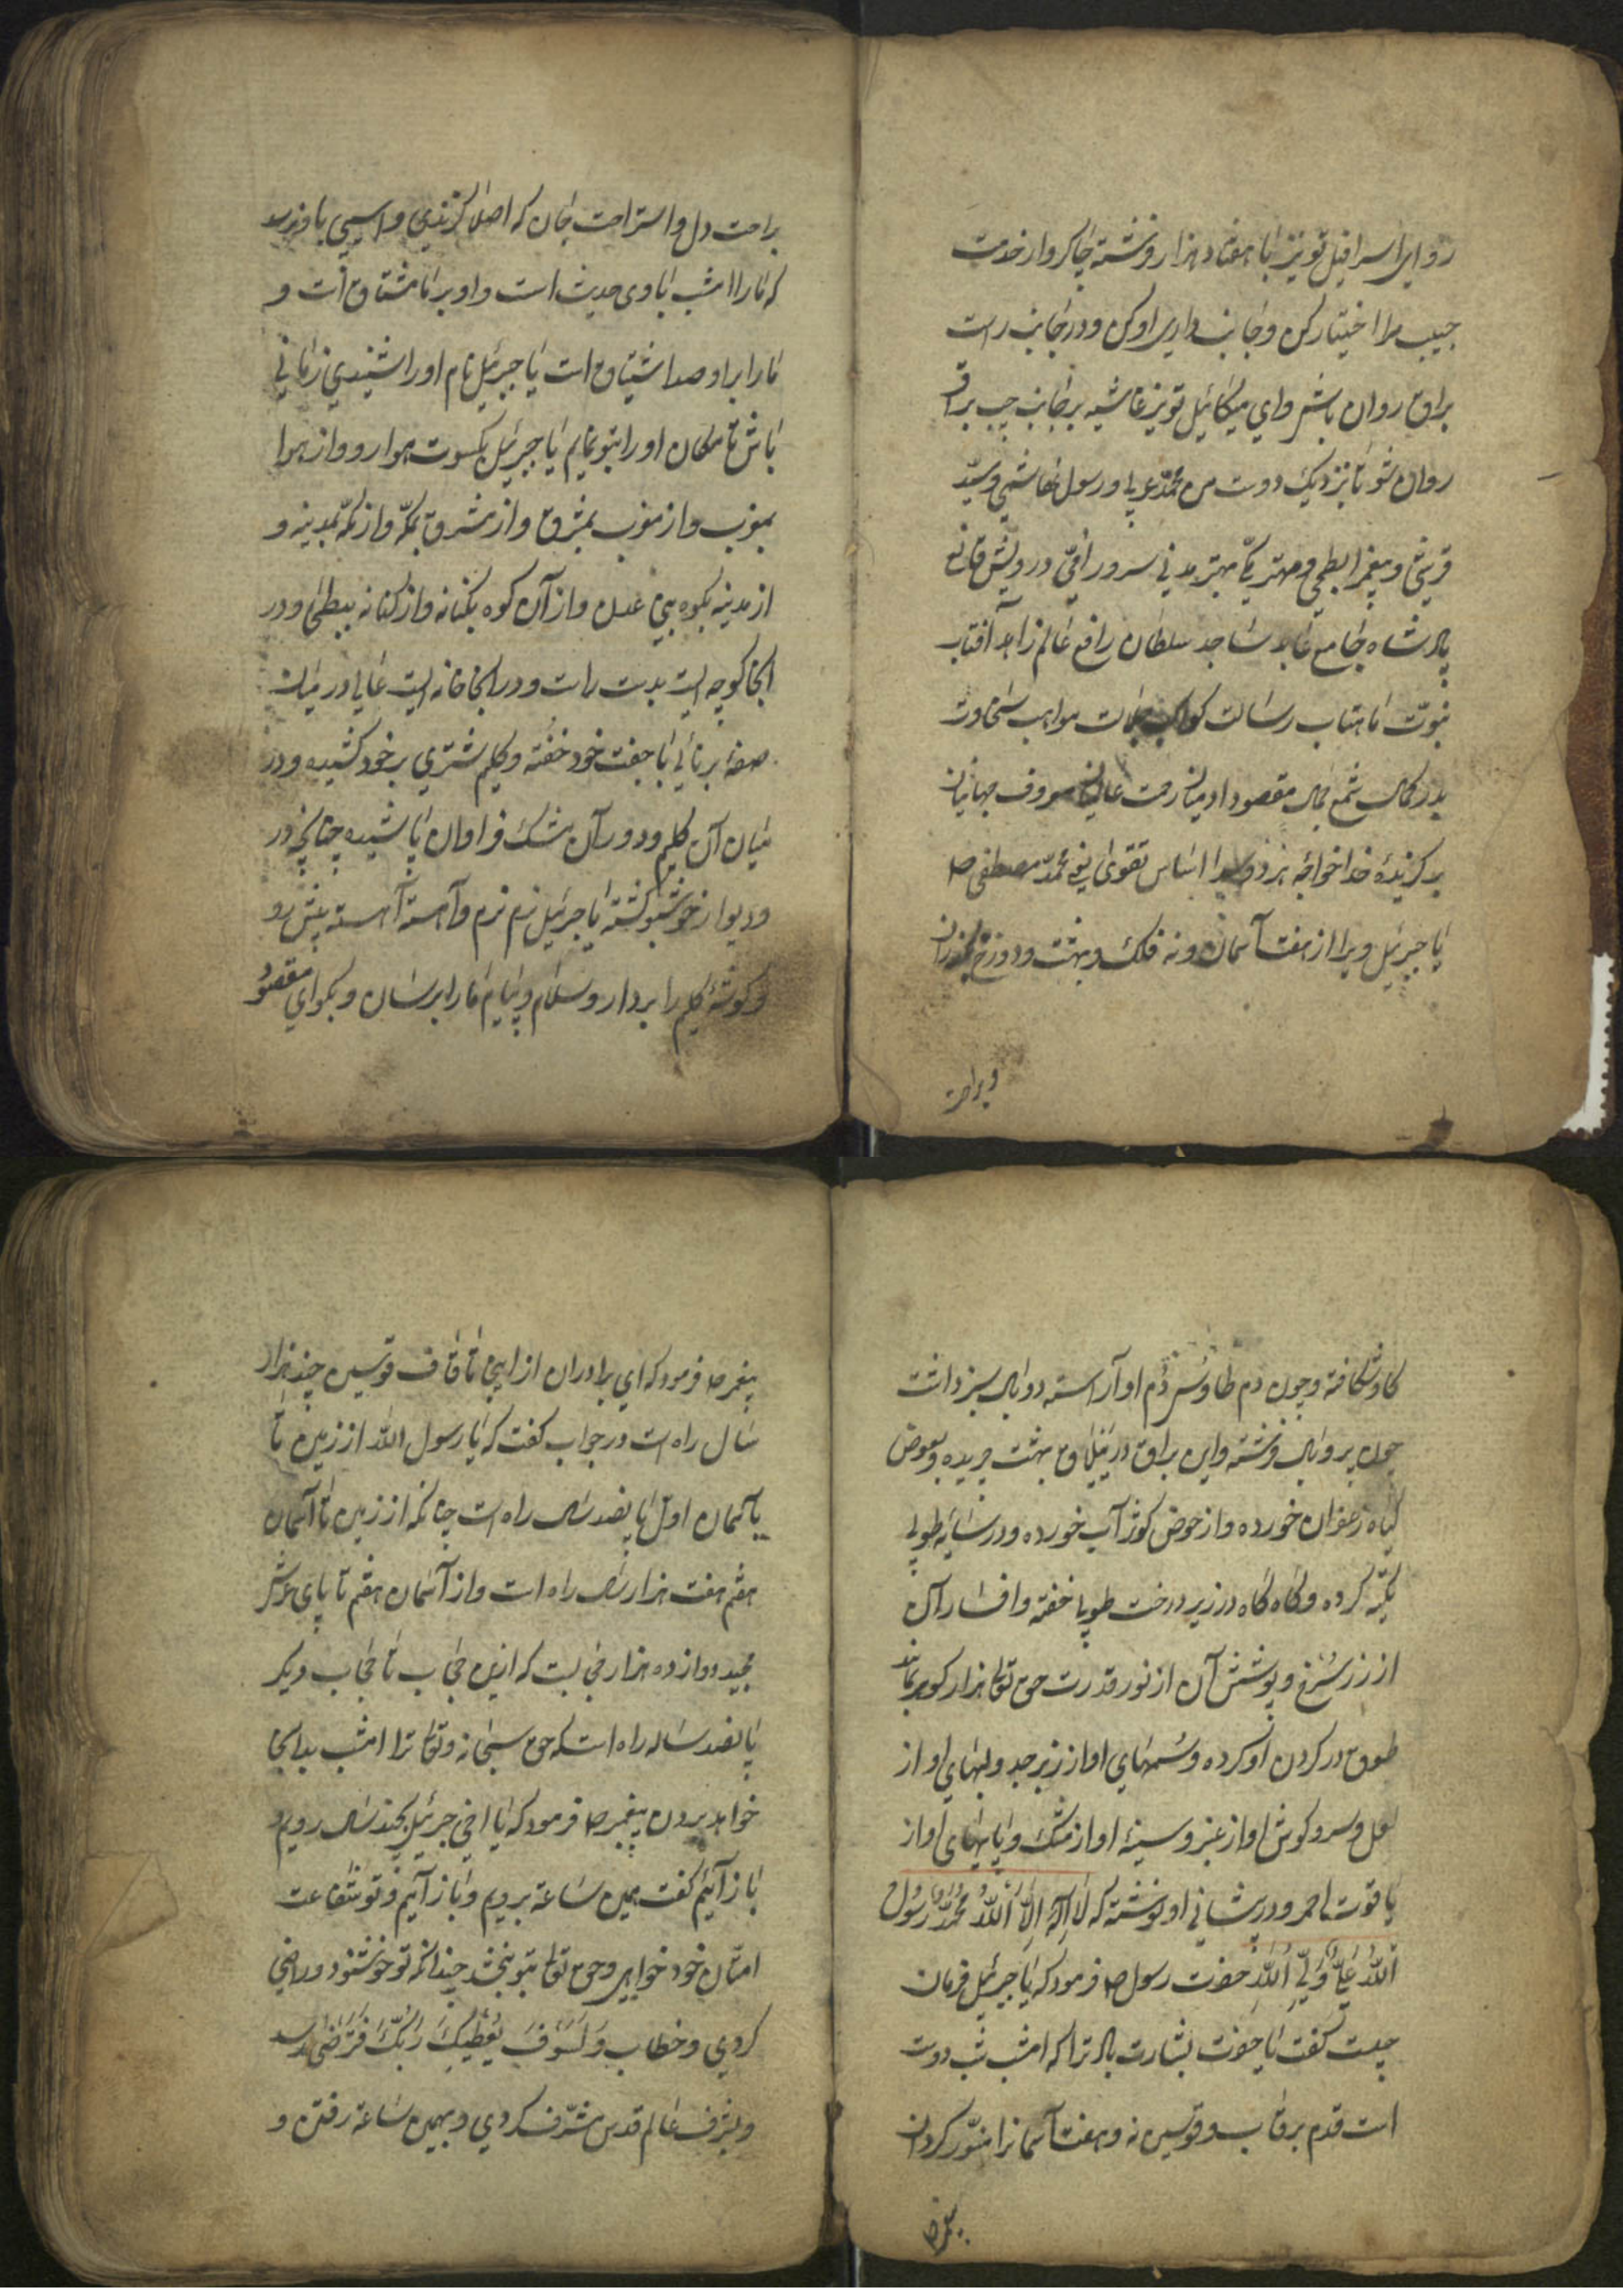 رو ای اسرافیل تو نیز با هفتاد هزار فرشته چاکروار خدمت
حبیب مرا اختیار کن و جانب داری او کن و در جانب راست
براق روان باش و ای میکائیل تو نیز غاشیه بر جانب چپ براق
روان شو تا بنزدیک دوست من محمد عربی و رسول هاشمی و سید
قریشی و پیغمبر ابطحی و مهتر مکی بهتر مدنی سرور امی درویش قانع
پادشاه جامع عابد ساجد سلطان رافع عالم زاهد آفتاب
نبوت ماهتاب رسالت کواکب جلالت مواهب سخاوت
بدر کمال شمع جمال مقصود آدمیان رحمت عالمیان معروف جهانیان
برگزیدۀ خدا خواجه هر دو سرا اساس تقوی یعنی محمد مصطفی ص
یا جبرئیل ویرا از هفت آسمان و نه فلک و بهشت و دوزخ بگذران
و براحت
براحت دل و استراحت جان که اصلا گزندی و آسیبی باو نرسد
که ما را امشب با وی حدیث است و او بر ما مشتاق است و
ما را بر او صد اشتیاق است یا جبرئیل نام او را شنیدی زمانی
باش تا مکان او را بتو نمایم یا جبرئیل بکسوت هوا رو و از هوا
بمغرب و از مغرب بمشرق و از مشرق بمکه و از مکه بمدینه و
از مدینه بکوه بنی عدل و از آن کوه بکنانه و از کنانه ببطحی و در
آنجا کوچه ایست بدست راست و در آنجا خانه ایست عالی در میان
صفه برنائی با جفت خود خفته و گلیم شتری بر خود کشیده و در
میان آن گلیم و دور آن مشک فراوان پاشیده چنانچه در
و دیوار خوشبو گشته یا جبرئیل نرم نرم و آهسته آهسته پیش رو
و گوشۀ گلیم را بردار و سلام و پیام ما را برسان و بگو ای مقصود
گاو شکافته و چون دم طاوس دم او آراسته دو بال سبز داشت
چون پر و بال فرشته و این براق در بیلاق بهشت چریده و بعوض
گیاه زعفران خورده و از حوض کوثر آب خورده و در سایه طوبی
تکیه کرده و گاه گاه در زیر درخت طوبی خفته و افسار آن
از زر سرخ و پوشش آن از نور قدرت حق تعالی هزار گوهر بمانند
طوق در گردن او کرده و سمهای او از زبرجد و لبهای او از
لعل و سر و گوش او از عنبر و سینۀ او از مشک و پایهای او از
یاقوت احمر و در پیشانی او نوشته که لا اله الا الله محمد رسول
الله علی ولی الله حضرت رسول ص فرمود که یا جبرئیل فرمان
چیست گفت یا حضرت بشارت باد ترا که امشب شب دوست
است قدم بر قاب قوسین نه و هفت آسمانرا منور گردان
پیغمبر ص
پیغمبر ص فرمود که ای برادران از اینجا تا قاف قوسین چند هزار
سال راه است در جواب گفت که یا رسول الله از زمین تا
بآسمان اول پانصد سال راه است چنانکه از زمین تا آسمان
هفتم هفت هزار سال راه است و از آسمان هفتم تا پای عرش
مجید دوازده هزار حجابست که ازین حجاب تا حجاب دیگر
پانصد ساله راه است که حق سبحانه و تعالی ترا امشب بدانجا
خواهد بردن پیغمبر ص فرمود که یا اخی جبرئیل بچند سال رویم و
باز آئیم گفت بهمین ساعة برویم و باز آئیم و تو شفاعت
امتان خود خواهی و حق تعالی بتو بخشد چندانکه تو خوشنود و راضی
گردی و خطاب ولسوف یعطیک ربک فترضی رسد
و بشرف عالم قدس مشرف گردی و بهمین ساعة رفتن و